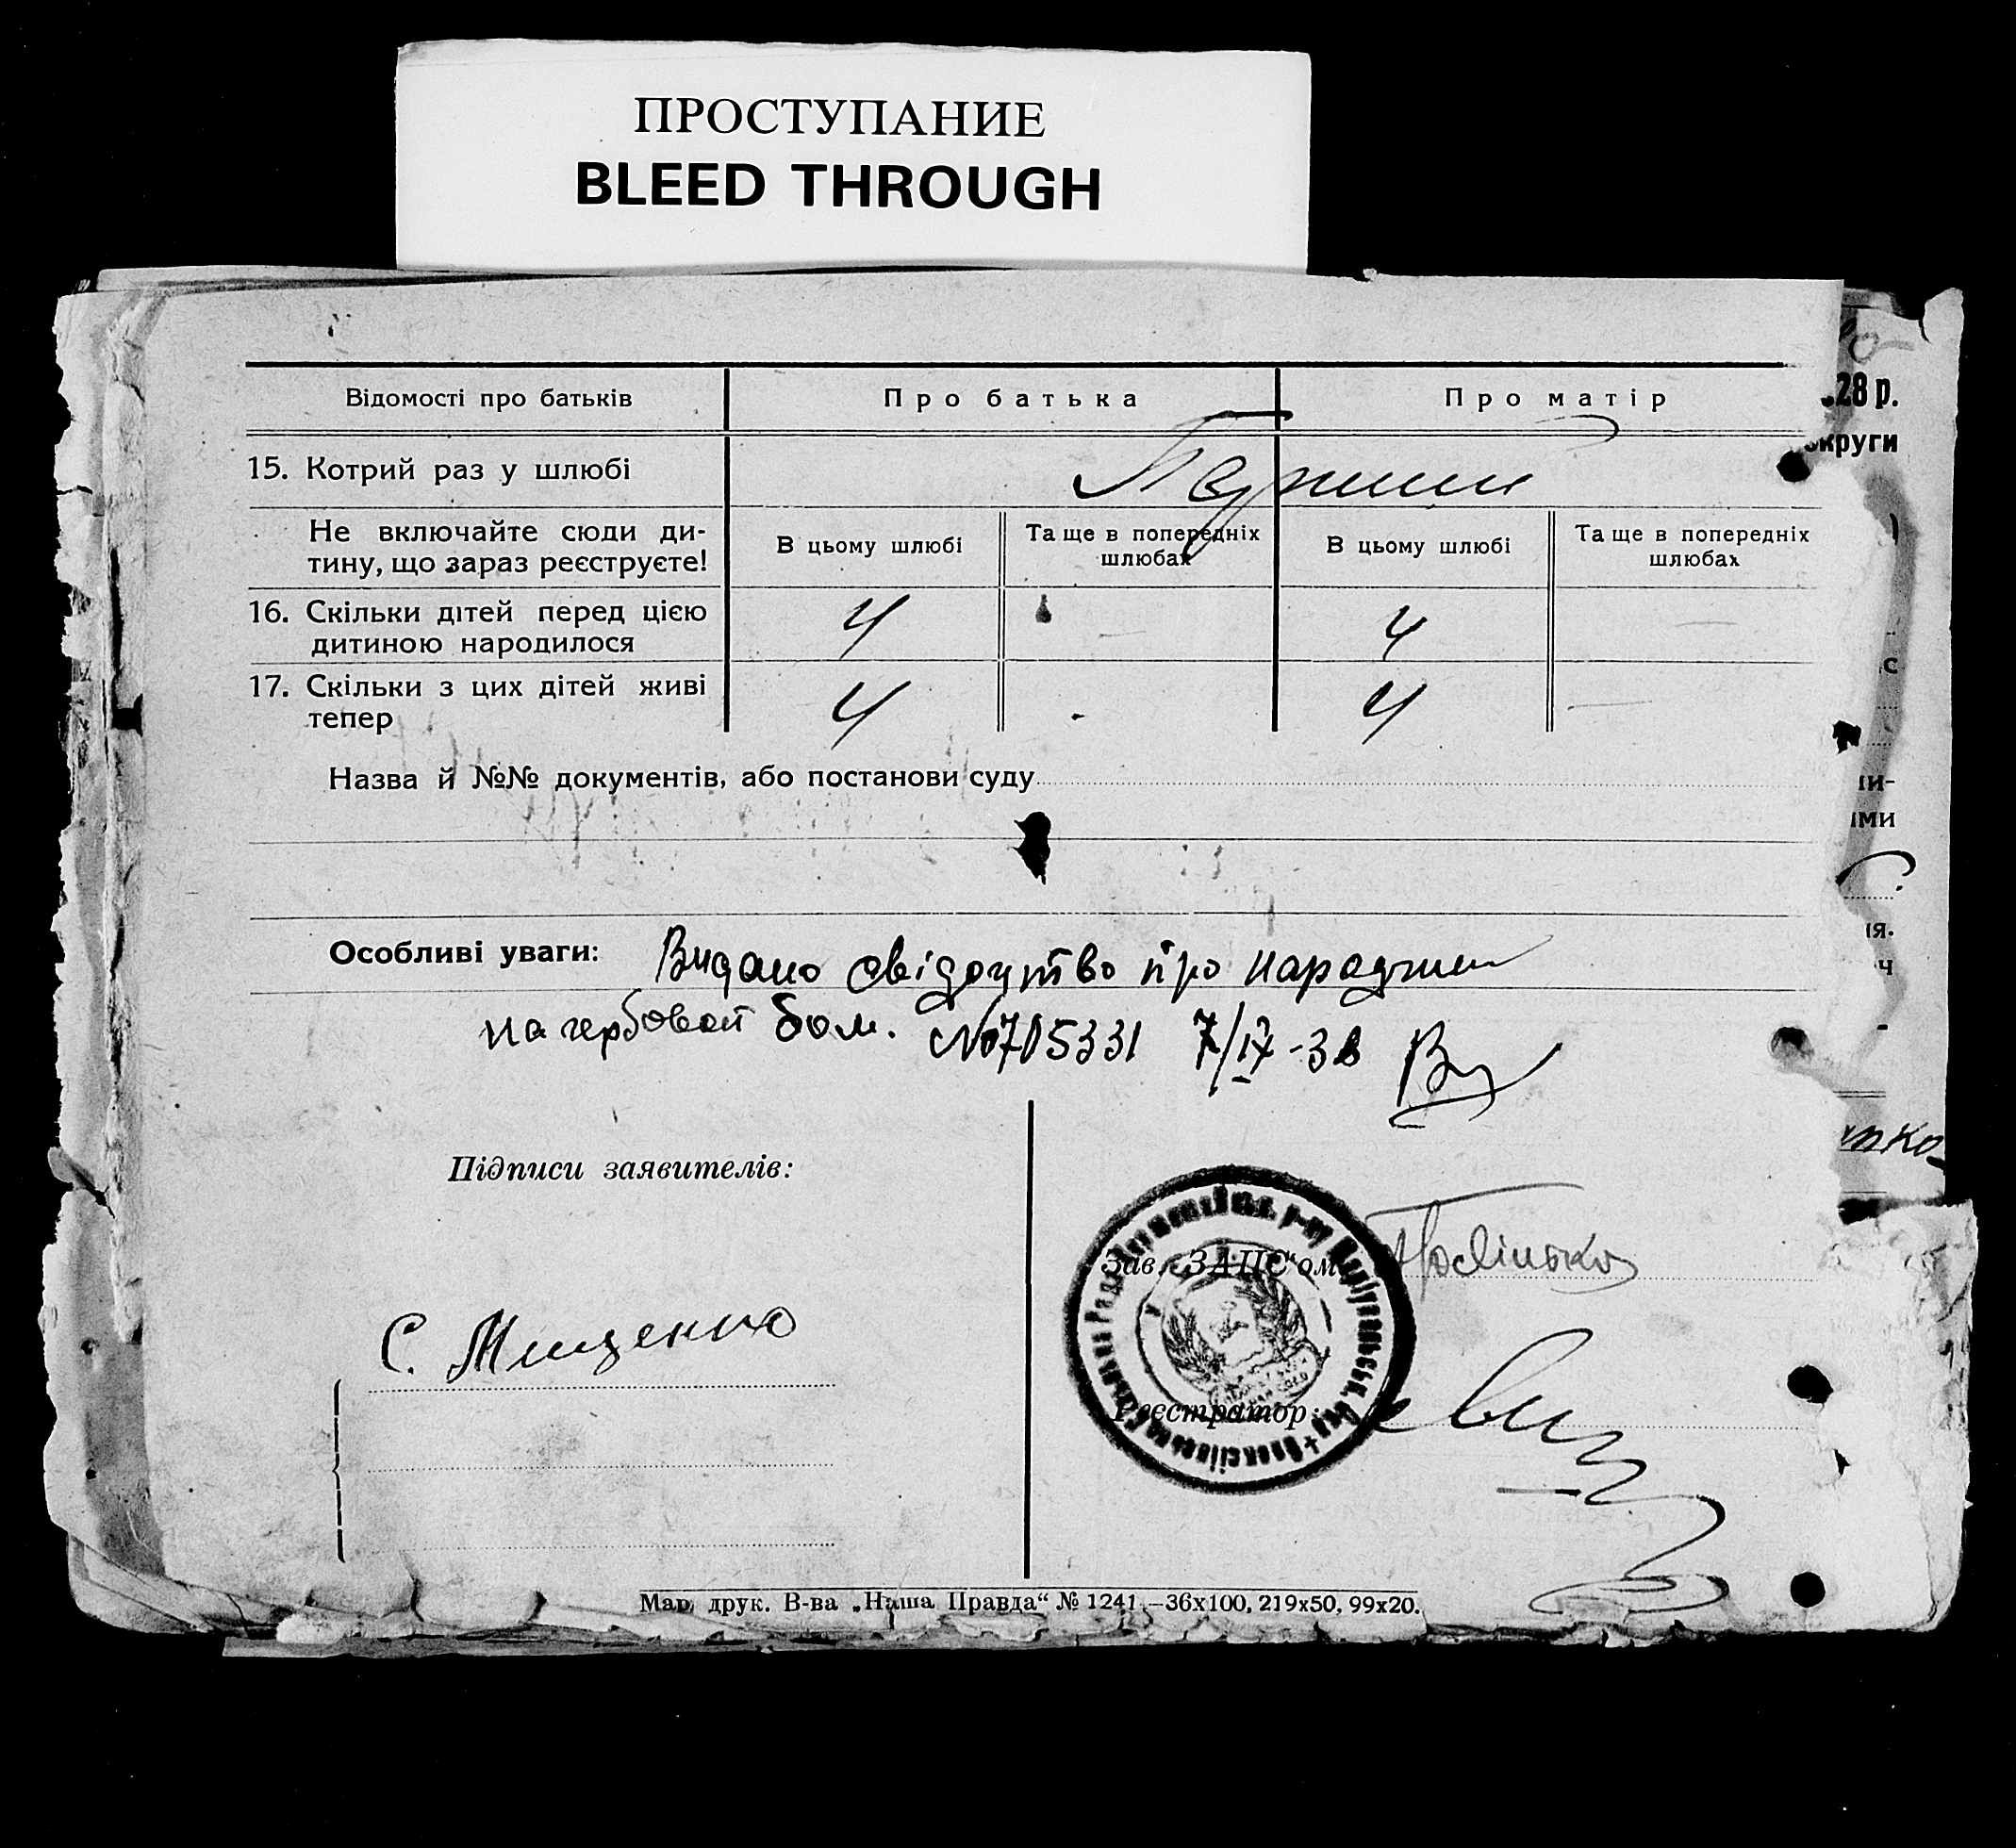 ПРОСТУПАНИЕ
BLEED THROUGH
Відомості про батьків
Про батька
Про матір
28 р.
округи
15. Котрий раз у шлюбі
Первий
Не включайте сюди ди-
тину, що зараз реєструєте!
В цьому шлюбі
Та ще в попередніх
шлюбах
В цьому шлюбі
Та ще в попередніх
шлюбах
16. Скільки дітей перед цією
дитиною народилося
4 – 4 —
17. Скільки з цих дітей живі
тепер
4 4 —
Назва й №№ документів, або постанови суду
Особливі уваги: Видано свідоцтво про народжен
на гербовой бом. №705331 7/IX-38
Підписи заявителів:
Зав. ЗАПС'ом
С. Мищенко
Реєстратор
Мар. друк. В-ва „Наша Правда“ № 1241—36х100, 219х50, 99х20.